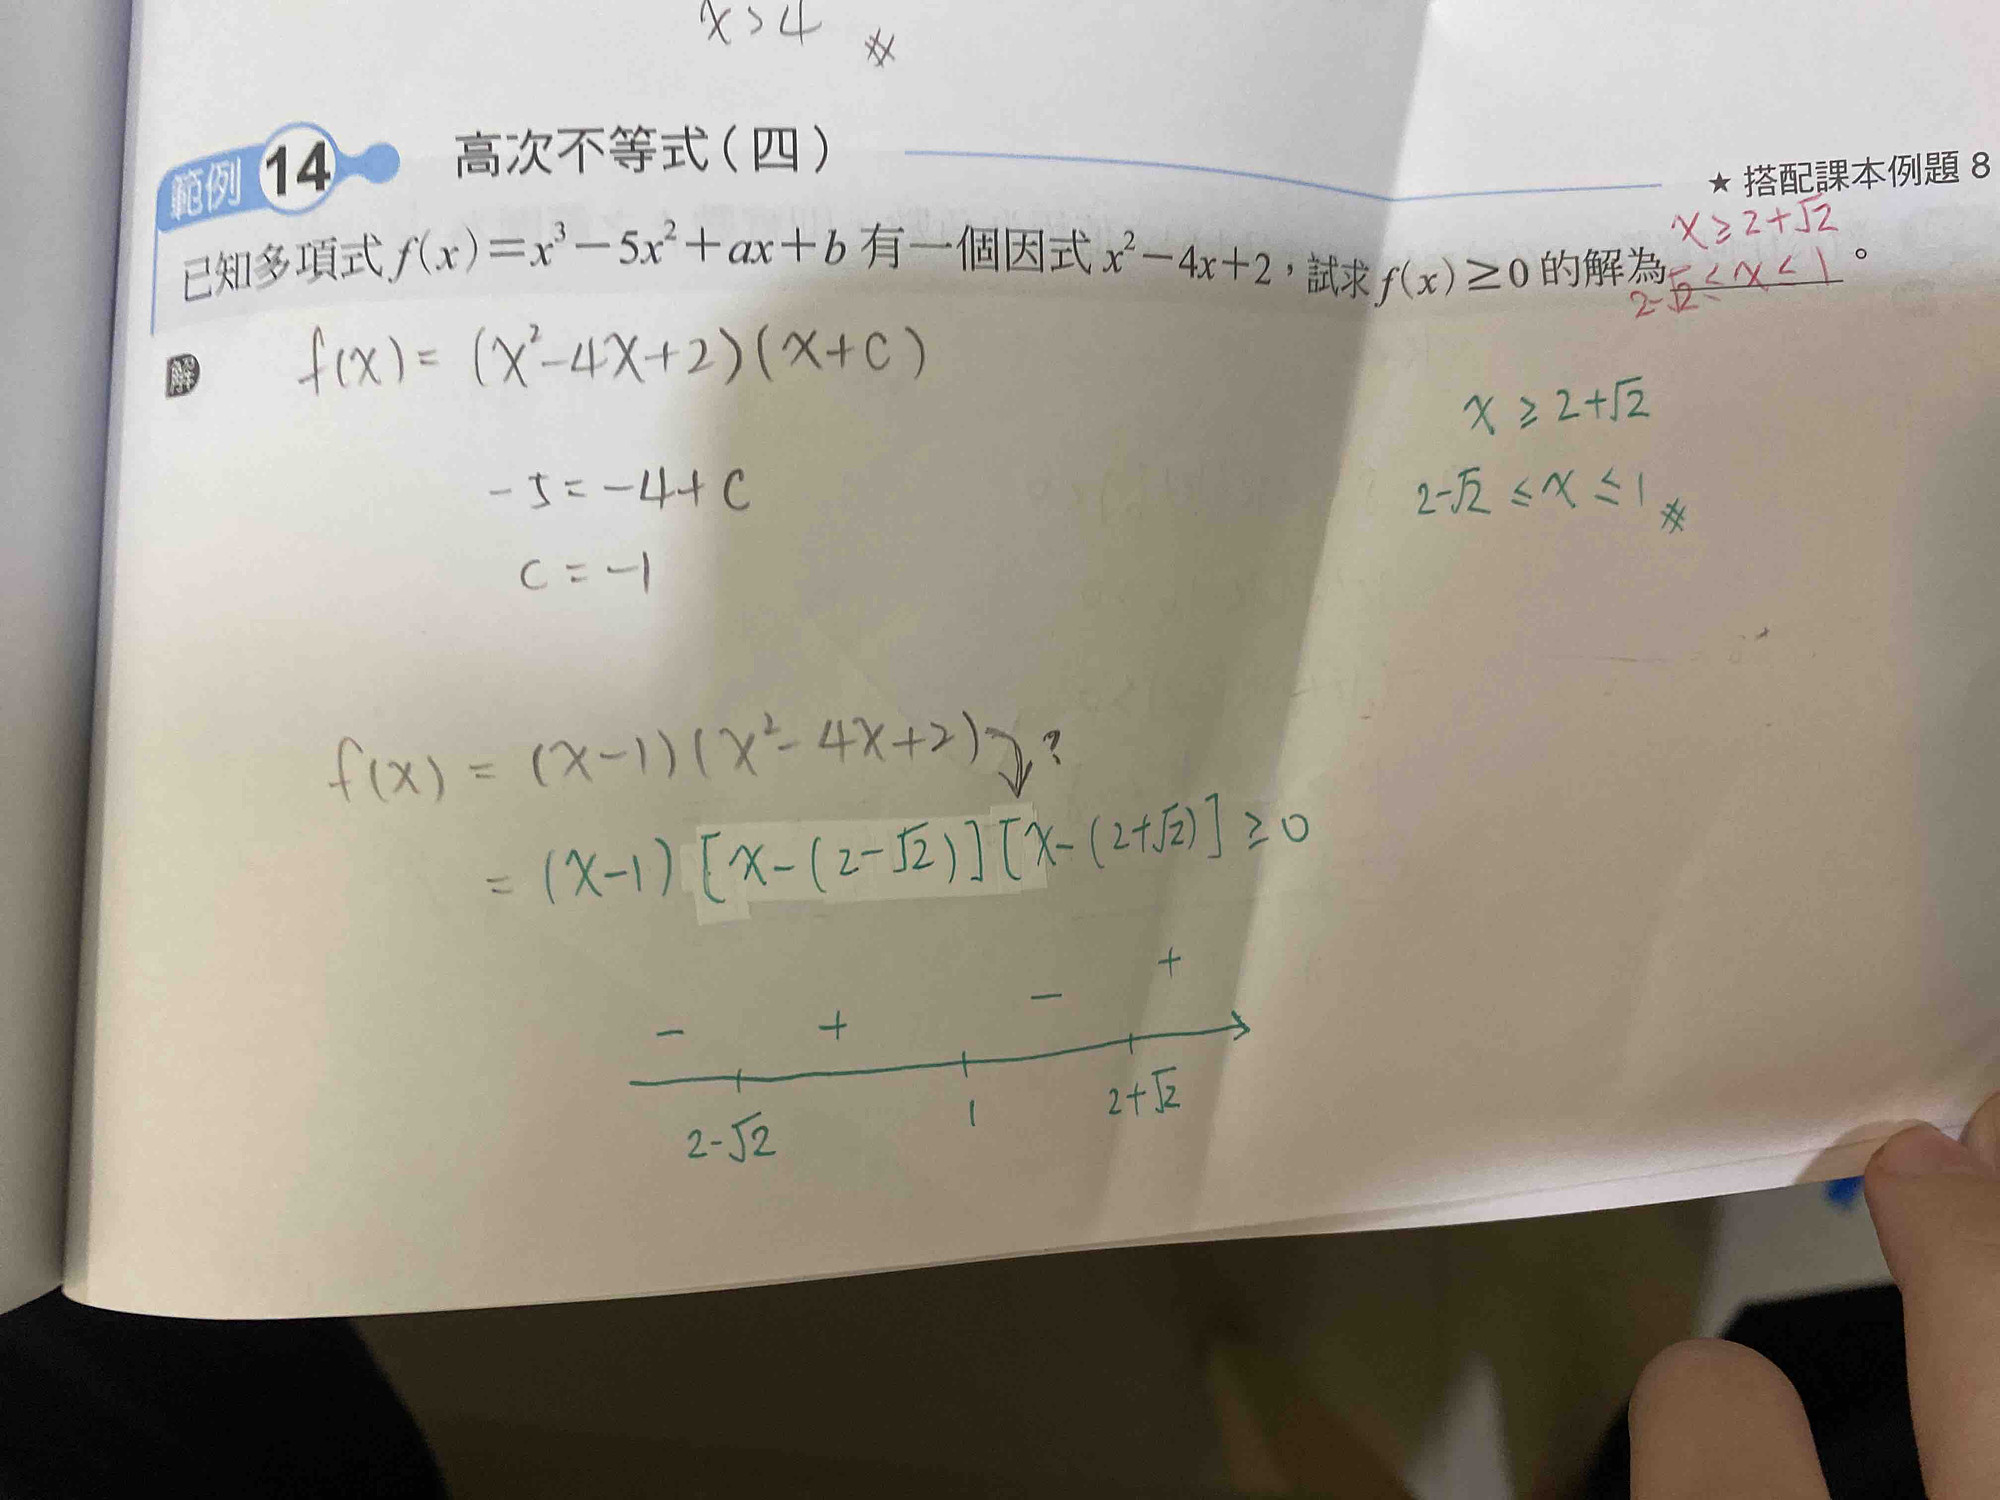 x>4 #
範例 14 高次不等式(四)
★ 搭配課本例題 8
已知多項式 f(x)=x³-5x²+ax+b 有一個因式 x²-4x+2,試求 f(x)≥0 的解為 。
x≥2+√2
2-√2≤x≤1
解 f(x)= (x²-4x+2)(x+c)
-5=-4+c
c=-1
x≥2+√2
2-√2≤x≤1 #
f(x) = (x-1)(x²-4x+2) ?
= (x-1)[x-(2-√2)][x-(2+√2)]≥0
- + - +
2-√2 1 2+√2